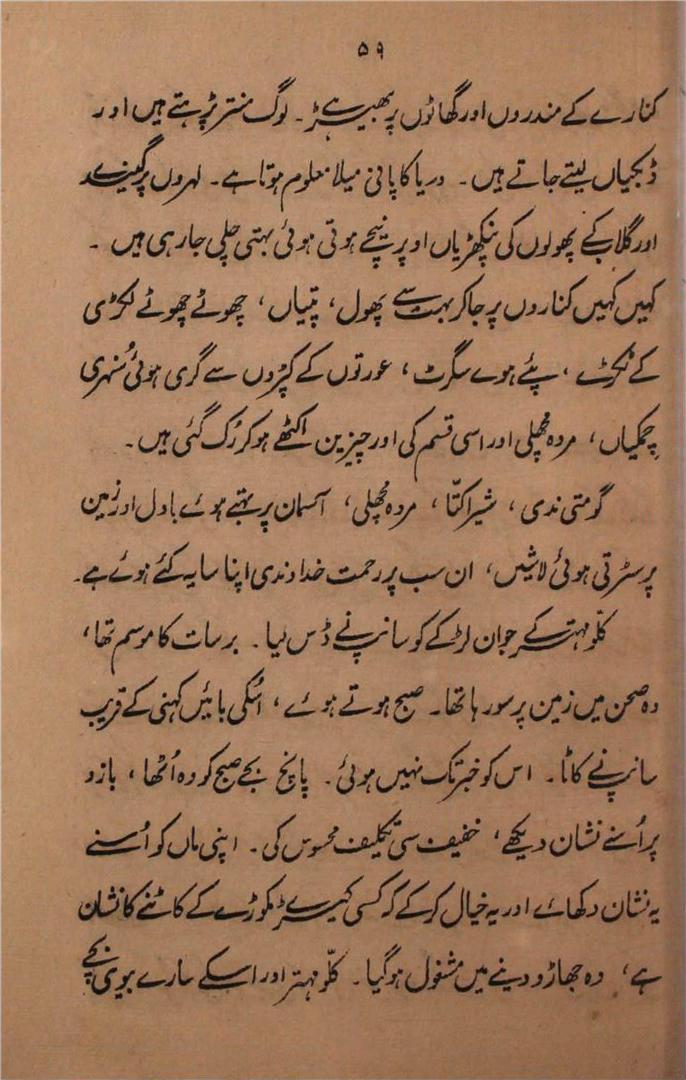 ۵۹
کنارے کے مندروں اور گھاٹوں پر بھیڑ ہے۔ لوگ منتر پڑہتے ہیں اور
ڈبکیاں لیتے جاتے ہیں۔ دریا کا پانی میلا معلوم ہوتا ہے۔ لہروں پر گیندے
اور گلاب کے پھولوں کی پنکھڑیاں اوپر نیچے ہوتی ہوئی بہتی چلی جا رہی ہیں۔
کہیں کہیں کناروں پر جا کر بہت سے پھول، پتیاں، چھوٹے چھوٹے لکڑی
کے ٹکڑے، پئے ہوے سگرٹ، عورتوں کے کپڑوں سے گری ہوئی سُنہری
چمکیاں، مردہ مچھلی اور اسی قسم کی اور چیزین اکٹھے ہو کر رُک گئی ہیں۔
گومتی ندی، شیرا کتّا، مردہ مچھلی، آسمان پر بہتے ہوئے بادل اور زمین
پر سڑتی ہوئی لاشیں، ان سب پر رحمت خداوندی اپنا سایہ کئے ہوئے ہے۔
کلّو مہتر کے جوان لڑکے کو سانپ نے ڈس لیا۔ برسات کا موسم تھا،
وہ صحن میں زمین پر سو رہا تھا۔ صبح ہوتے ہوئے، اُسکی بائیں کہنی کے قریب
سانپ نے کاٹا۔ اس کو خبر تک نہیں ہوئی۔ پانچ بجے صبح کو وہ اُٹھا، بازو
پر اُسنے نشان دیکھے، خفیف سی تکلیف محسوس کی۔ اپنی ماں کو اُسنے
یہ نشان دکھائے اور یہ خیال کر کے کہ کسی کیڑے مکوڑے کے کاٹنے کا نشان
ہے، وہ جھاڑو دینے میں مشغول ہو گیا۔ کلّو مہتر اور اسکے سارے بیوی بچے